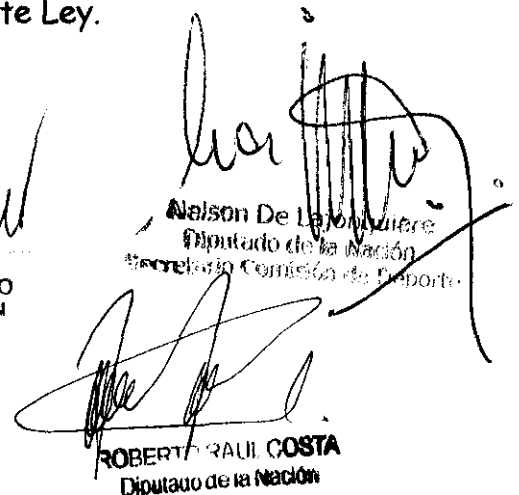 te Ley.
Nelson De Lajonquiere
Diputado de la Nación
Secretario Comisión de Deporte
O
N
ROBERTO RAUL COSTA
Diputado de la Nación